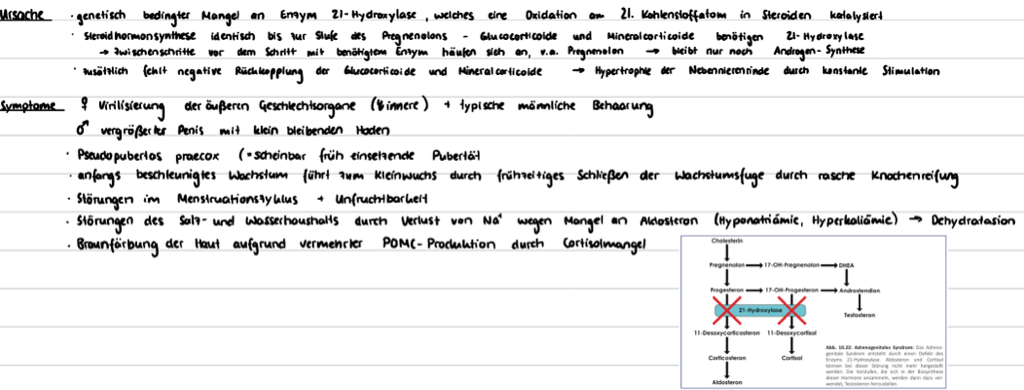 Ursache · genetisch bedingter Mangel an Enzym 21-Hydroxylase, welches eine Oxidation am 21. Kohlenstoffatom in Steroiden katalysiert
· Steroidhormonsynthese identisch bis zur Stufe des Pregnenolons - Glucocorticoide und Mineralcorticoide benötigen 21-Hydroxylase
→ Zwischenschritte vor dem Schritt mit benötigtem Enzym häufen sich an, v.a. Pregnenolon → bleibt nur noch Androgen-Synthese
· zusätzlich fehlt negative Rückkopplung der Glucocorticoide und Mineralcorticoide → Hypertrophie der Nebennierenrinde durch konstante Stimulation
Symptome ♀ Virilisierung der äußeren Geschlechtsorgane (↯innere) + typische männliche Behaarung
♂ vergrößerter Penis mit klein bleibenden Hoden
· Pseudopubertas praecox (=scheinbar früh einsetzende Pubertät
· anfangs beschleunigtes Wachstum führt zum Kleinwuchs durch frühzeitiges Schließen der Wachstumsfuge durch rasche Knochenreifung
· Störungen im Menstruationszyklus + Unfruchtbarkeit
· Störungen des Salz- und Wasserhaushalts durch Verlust von Na⁺ wegen Mangel an Aldosteron (Hyponatriämie, Hyperkaliämie) → Dehydratasion
· Braunfärbung der Haut aufgrund vermehrter POMC-Produktion durch Cortisolmangel
Cholesterin
Pregnenolon → 17-OH-Pregnenolon → DHEA
Progesteron → 17-OH-Progesteron → Androstendion
21-Hydroxylase
Testosteron
11-Desoxycorticosteron 11-Desoxycortisol
Corticosteron Cortisol
Aldosteron
Abb. 10.23: Adrenogenitales Syndrom: Das Adreno-
genitale Syndrom entsteht durch einen Defekt des
Enzyms 21-Hydroxylase. Aldosteron und Cortisol
können bei dieser Störung nicht mehr hergestellt
werden. Die Vorstufen, die sich in der Biosynthese
dieser Hormone ansammeln, werden dann dazu ver-
wendet, Testosteron herzustellen.